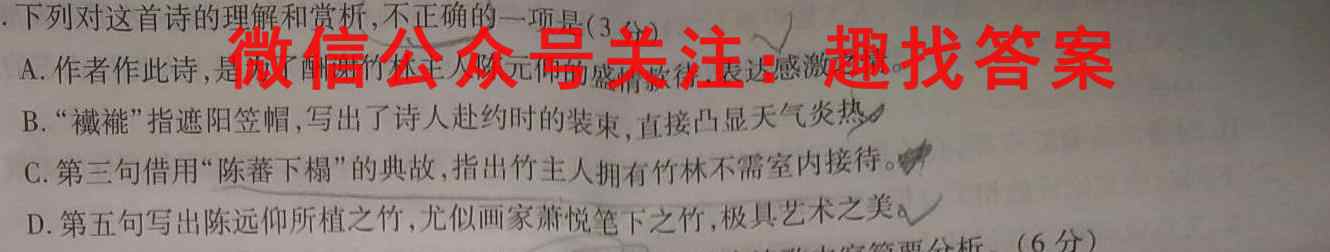 .下列对这首诗的理解和赏析,不正确的一项是(3分)
微信公众号关注：趣找答案
A.作者作此诗,是为了酬谢竹林主人陈元仰的盛情款待,表达感激
B.“襶褦”指遮阳笠帽,写出了诗人赴约时的装束,直接凸显天气炎热。
C.第三句借用“陈蕃下榻”的典故,指出竹主人拥有竹林不需室内接待。
D.第五句写出陈远仰所植之竹,尤似画家萧悦笔下之竹,极具艺术之美。
简要分析。(6分)